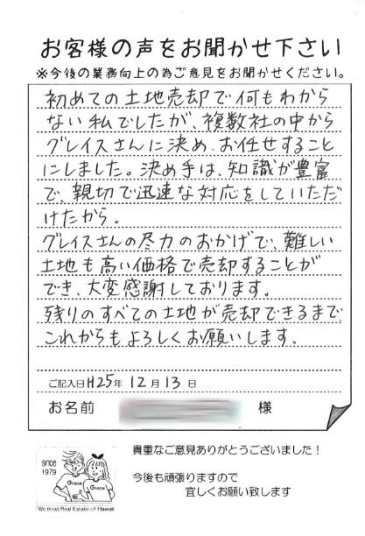 お客様の声をお聞かせ下さい
※今後の業務向上の為ご意見をお聞かせください。
初めての土地売却で何もわから
ない私でしたが、複数社の中から
グレイスさんに決め、お任せすること
にしました。決め手は、知識が豊富
で、親切で迅速な対応をしていただ
けたから。
グレイスさんの尽力のおかげで、難しい
土地も高い価格で売却することが
でき、大変感謝しております。
残りのすべての土地が売却できるまで、
これからもよろしくお願いします。
ご記入日H25年 12月 13日
お名前 様
貴重なご意見ありがとうございました！
since
1979
今後も頑張りますので
宜しくお願い致します
Grace
Grace
We trust Real Estate of Hawaii